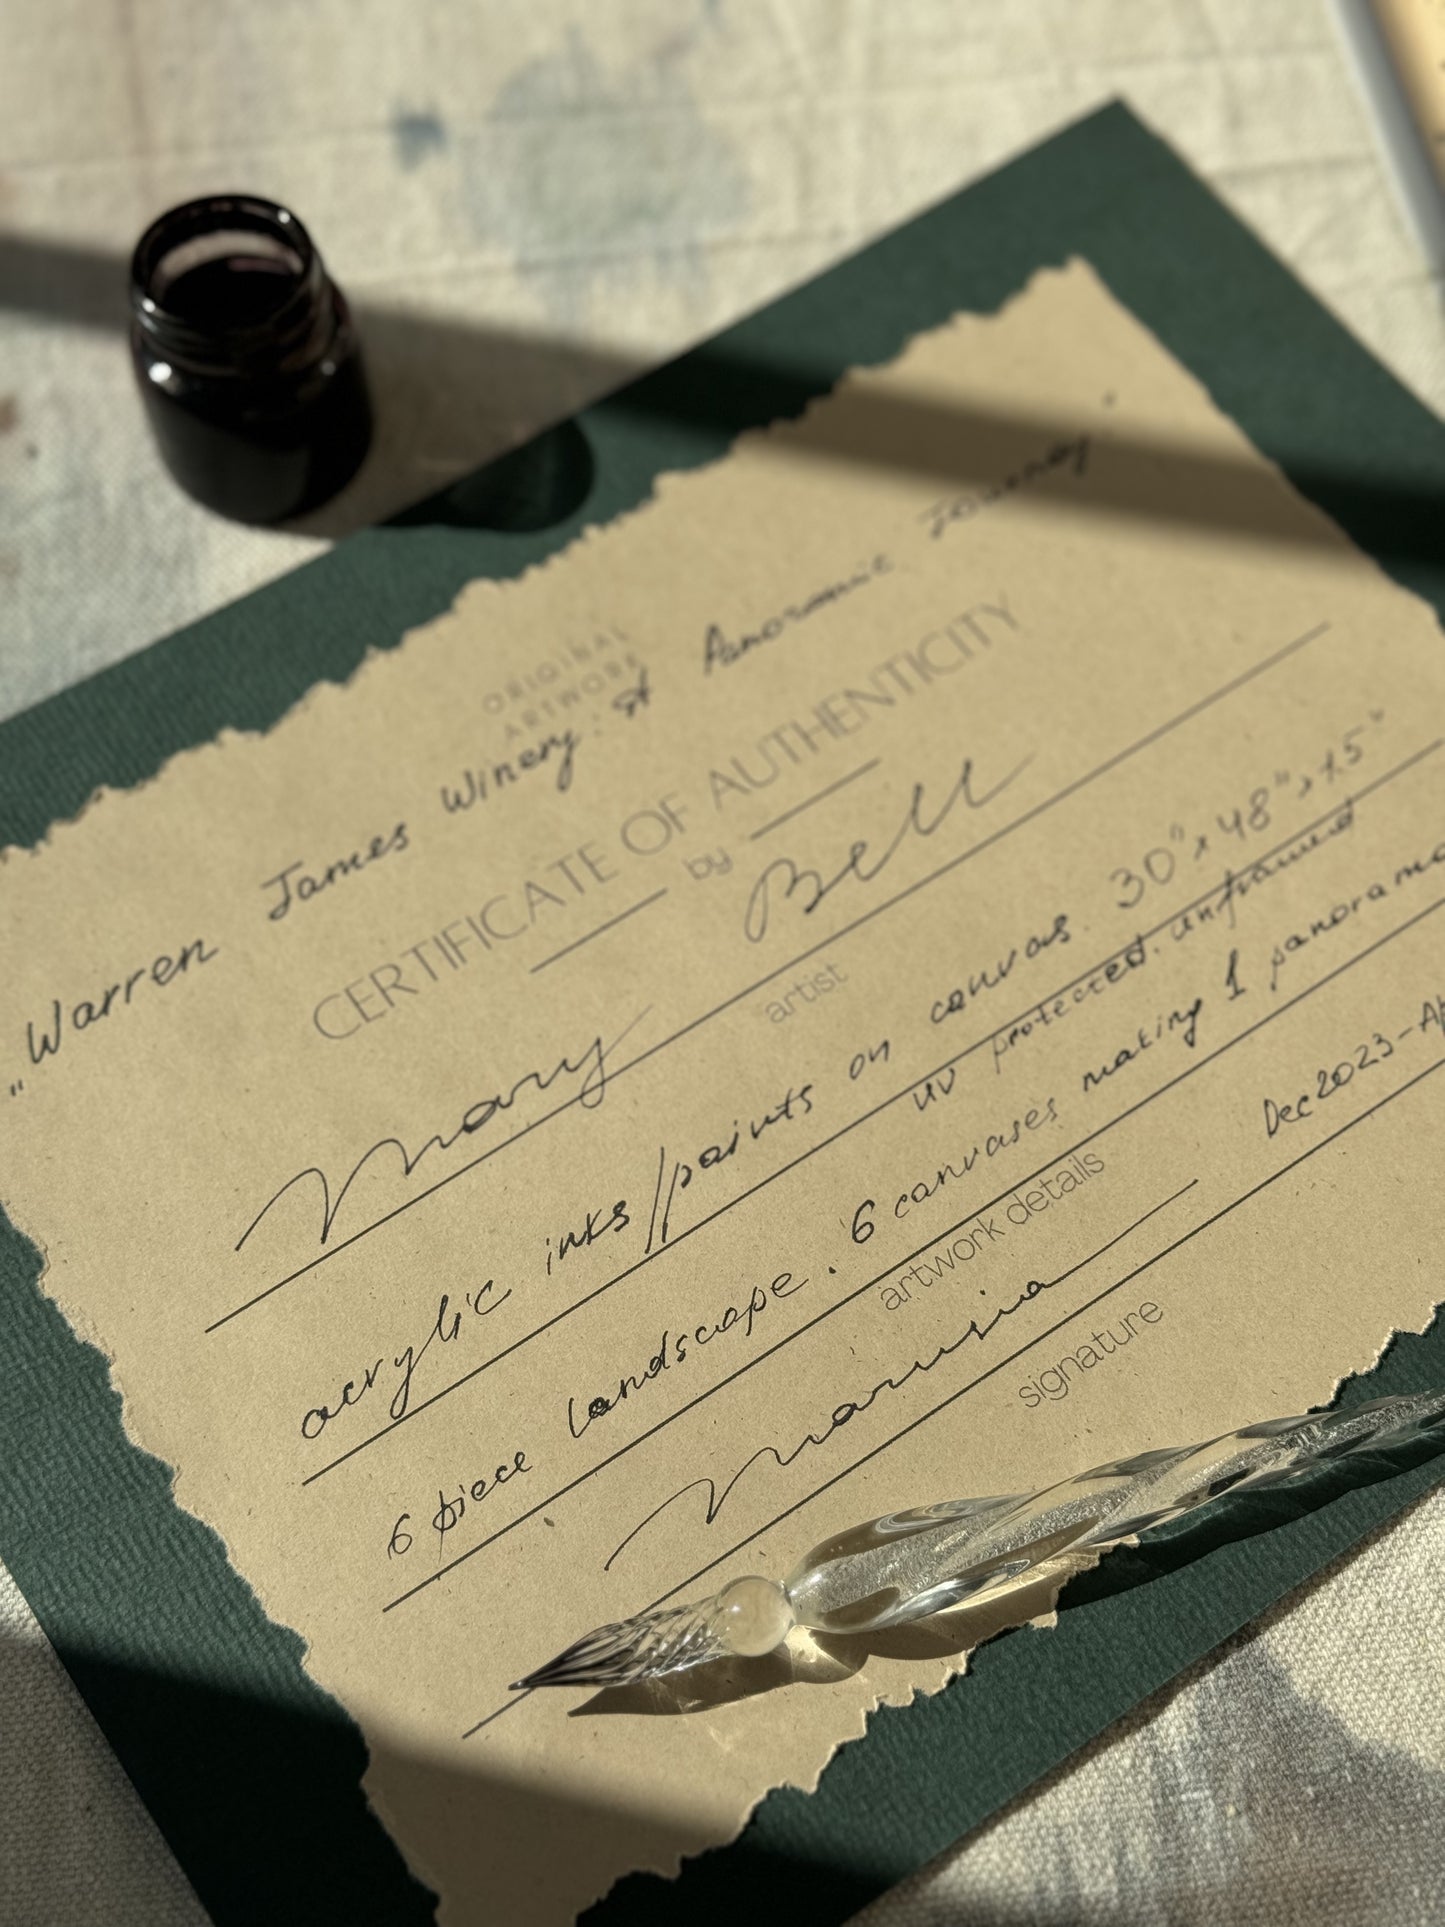 ORIGINAL
ARTWORK
„Warren James Winery: A Panoramic Journey
CERTIFICATE OF AUTHENTICITY
by
Mary Bell
artist
acrylic inks/paints on canvas. 30" x 48" x 1.5"
UV protected. unframed
6 piece landscape. 6 canvases making 1 panorama
artwork details
Dec 2023-Ap
Marusia
signature